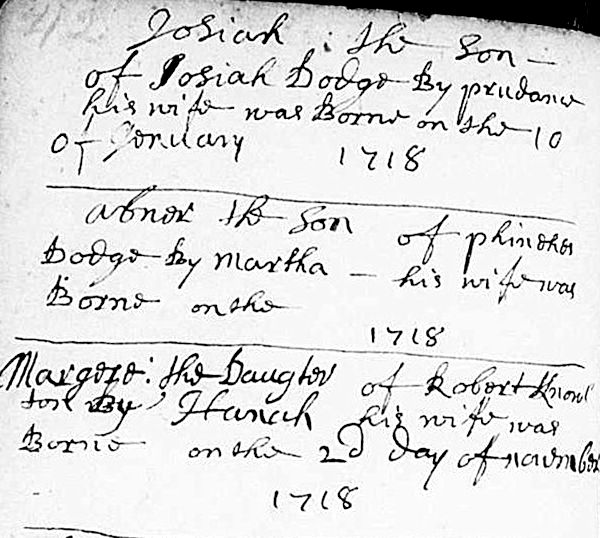 Josiah : the Son -
of Josiah Dodge By prudance
his wife was Borne on the 10
of Jenuary 1718
abner the Son of phinehes
Dodge By Martha - his wife was
Borne on the
1718
Margere : the Daugter of Robert Knowl
ton By Hanah his wife was
Borne on the 2d day of november
1718